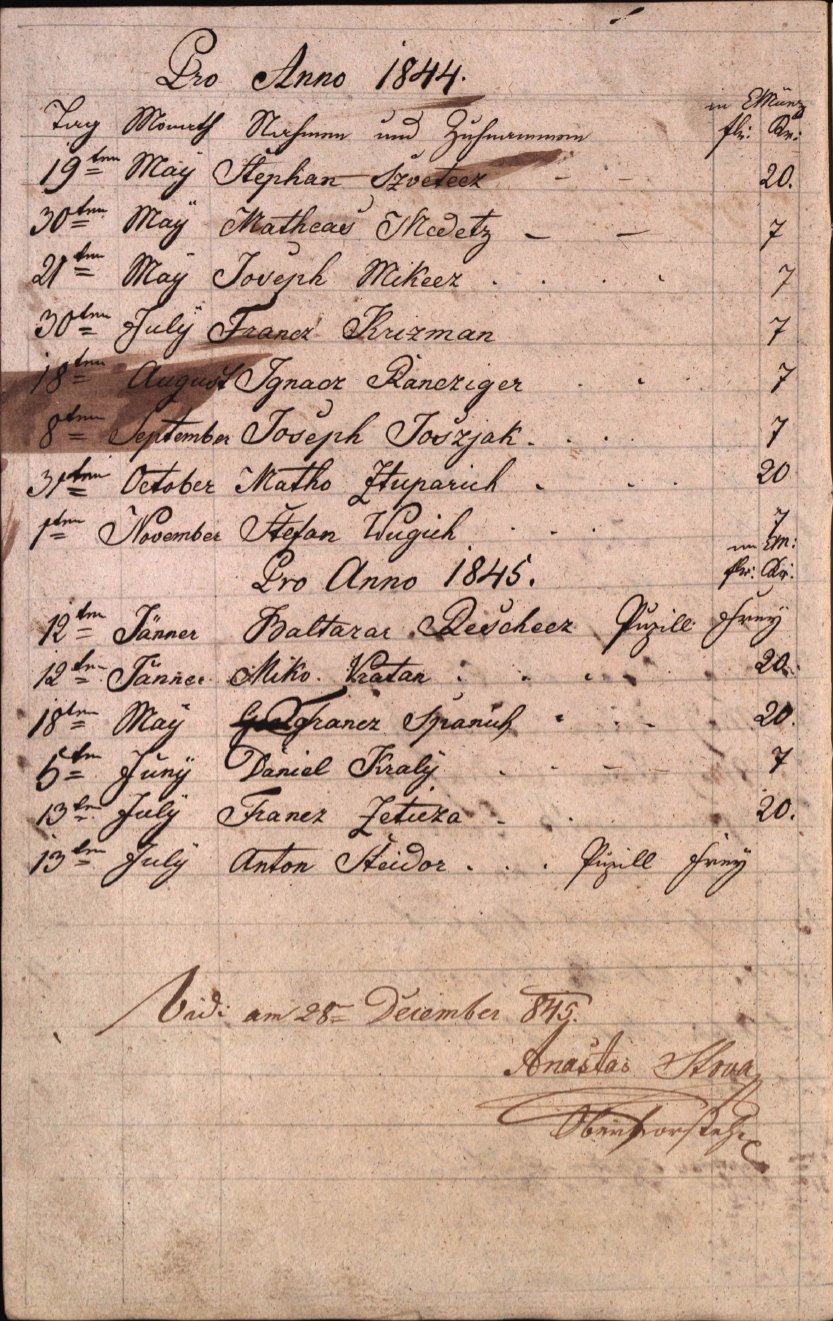 Pro Anno 1844.
in CMünz
Tag Monath Nahmen und Zuhnammen flr: Kr:
19ten Maÿ Stephan Szvetecz - - 20.
30ten Maÿ Matheas Medetz - - 7
21ten Maÿ Joseph Mikecz . . . . 7
30ten Julÿ Francz Krizman 7
18ten August Ignacz Rancziger . . . 7
8ten September Joseph Joszjak . . . 7
31ten October Matho Ztuparich . . . 20
1ten November Stefan Vugich . . . 7
in CM:
Pro Anno 1845. flr: Kr.
12ten Jänner Baltazar Reschecz Pupill Freÿ
12ten Jänner Miko Vratan . . . . 20.
18ten Maÿ Francz Spanich . . . 20.
6ten Junÿ Daniel Kralÿ . . - - 7
13ten Julÿ Francz Zeticza - . . 20.
13ten Julÿ Anton Steidor . . . Pupill Freÿ
Vidi am 28ten December 845.
Anastas
Obervorsteher